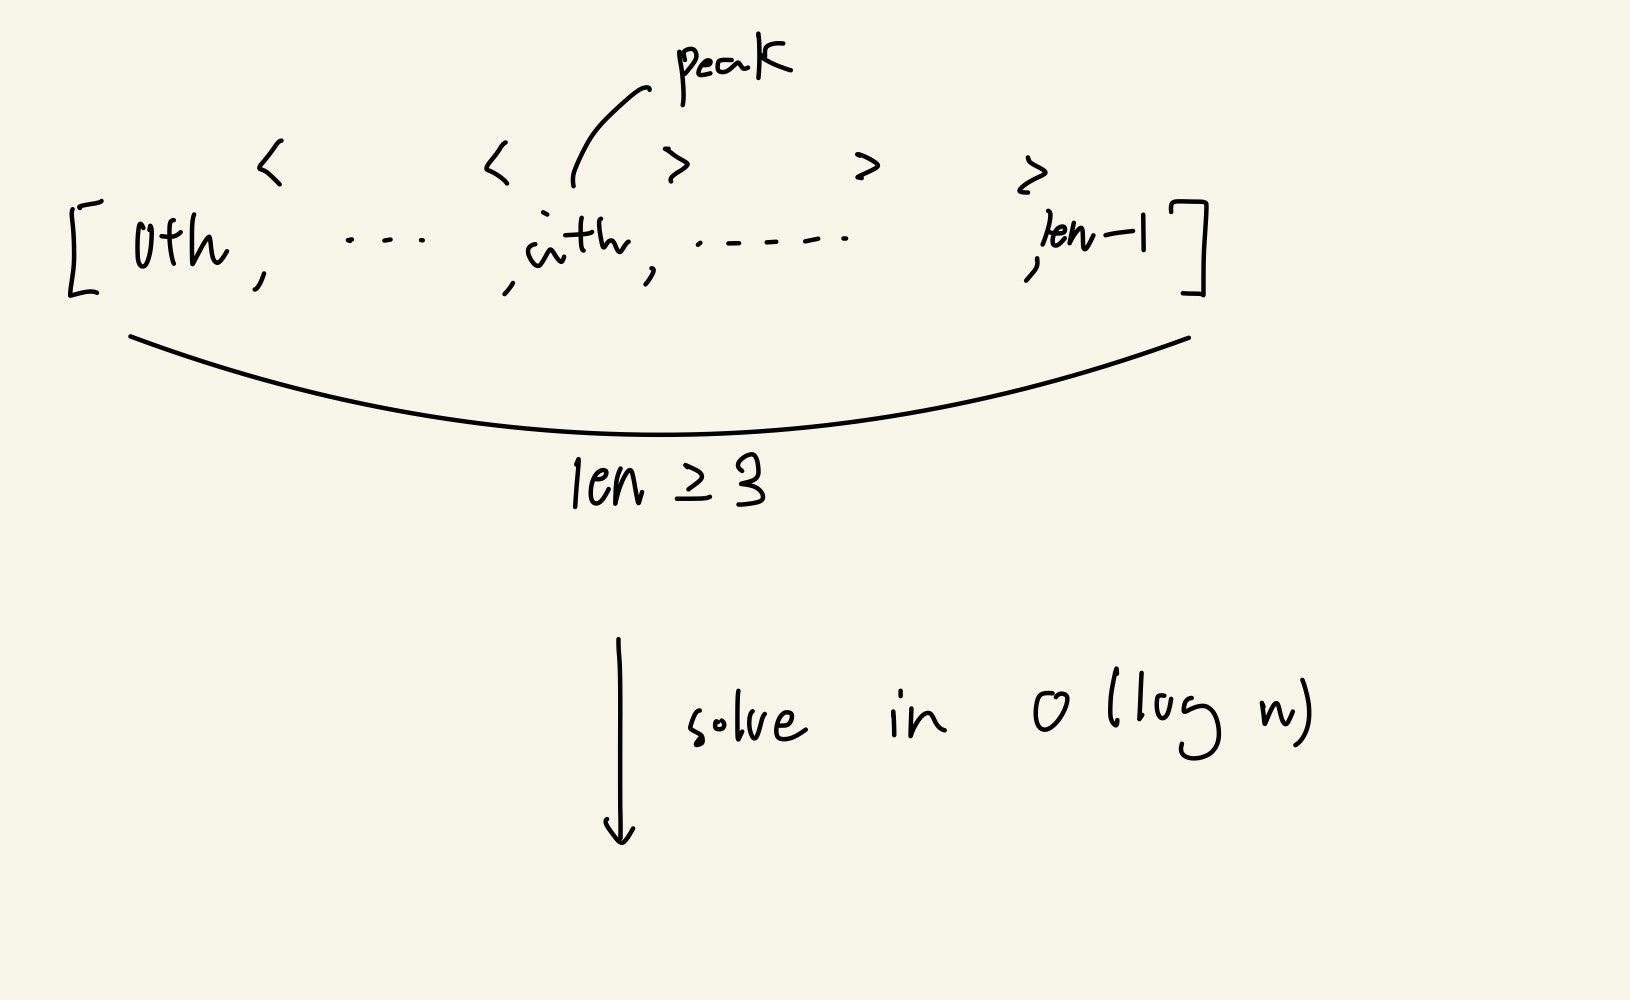 peak
< < > > >
[ 0th, ... , ith, ------ , len-1 ]
len ≥ 3
solve in O (log n)